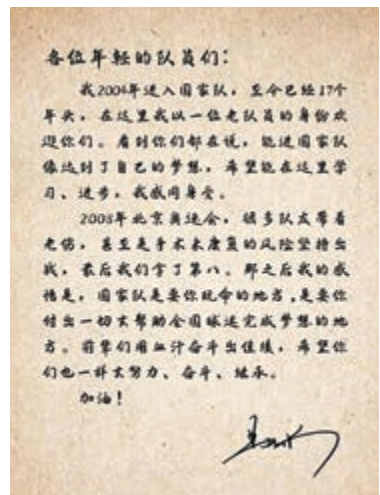 各位年轻的队员们：
我2004年进入国家队，至今已经17个
年头，在这里我以一位老队员的身份欢
迎你们。看到你们都在说，能进国家队
像达到了自己的梦想，希望能在这里学
习、进步，我感同身受。
2008年北京奥运会，很多队友带着
老伤，甚至是手术未康复的风险坚持出
战，最后我们拿了第八。那之后我的感
悟是，国家队是要你玩命的地方，是要你
付出一切去帮助全国球迷完成梦想的地
方。前辈们用血汗奋斗出佳绩，希望你
们也一样去努力、奋斗、继承。
加油！